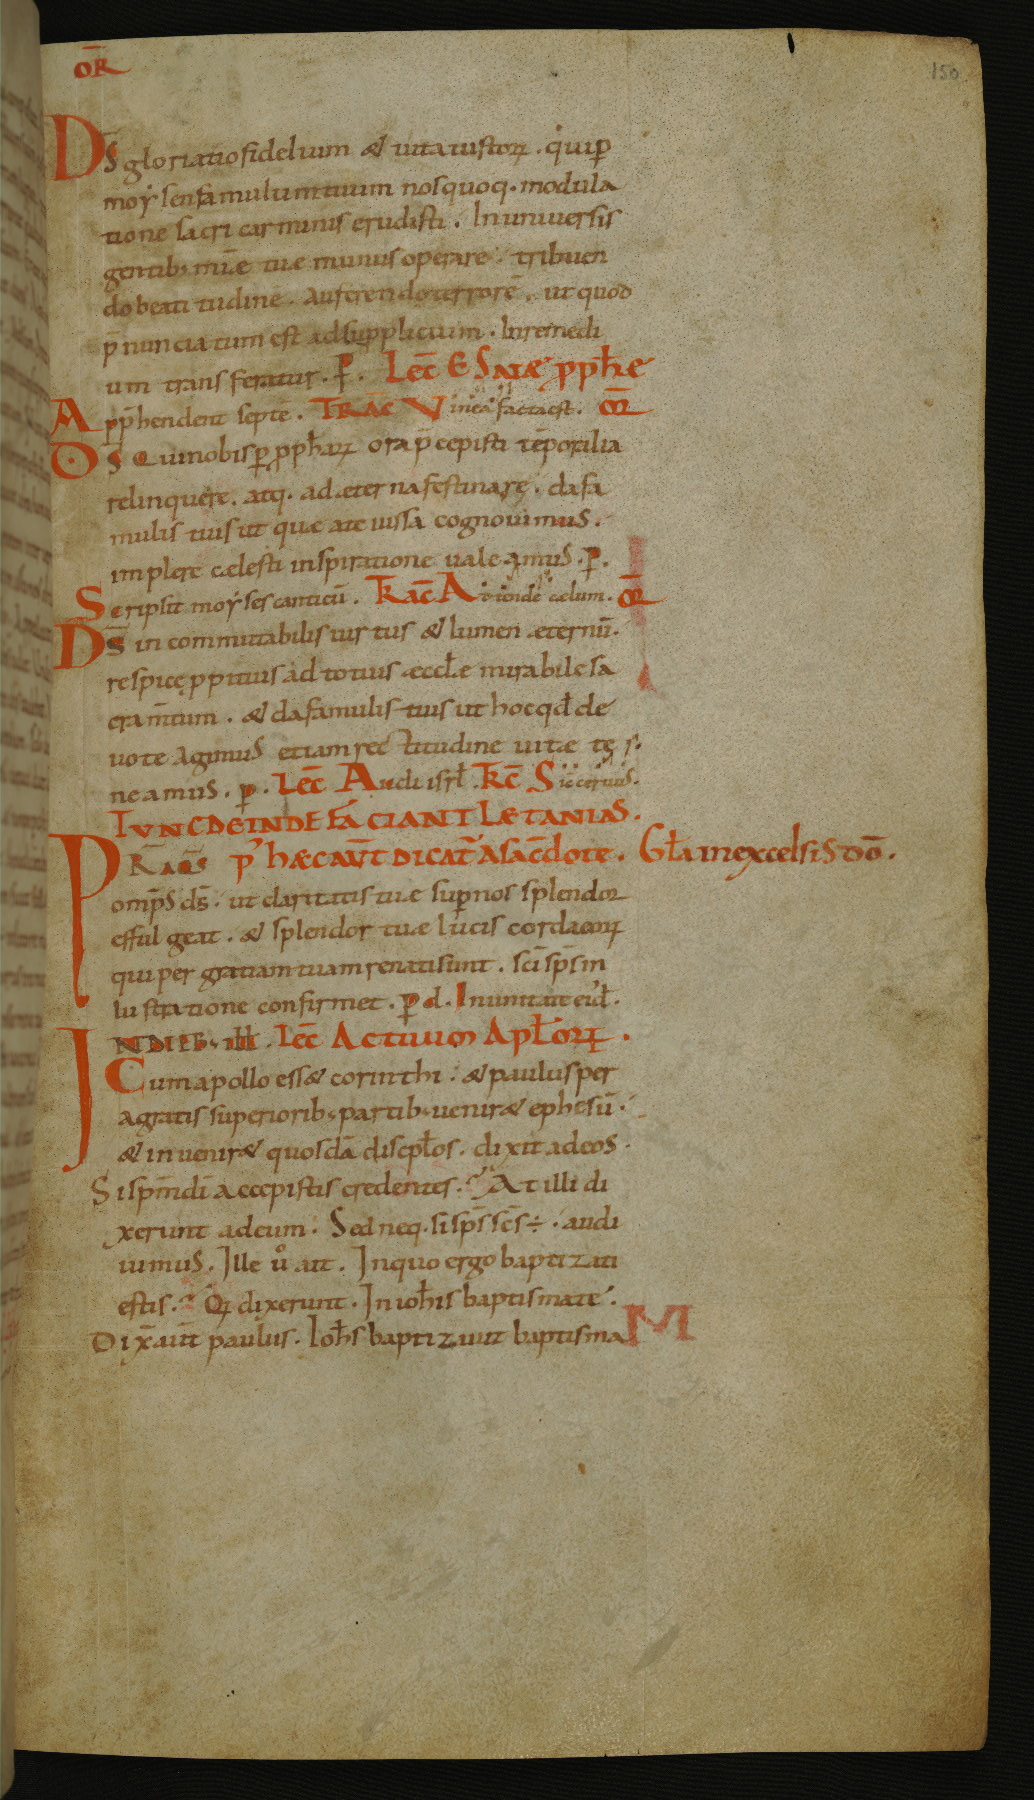 OR̄
150
DS̄ gloriatio fidelium & uita iustorꝝ . qui ꝑ
moẏsen famulum tuum nos quoq. modula
tione sacri carminis erudisti . In uniuersis
gentib; mīæ tuæ munus operare . tribuen
do beatitudinē . auferendo terrorē . ut quod
p̄nunciatum est ad supplicium . In remedi
um transferatur . ꝑ . LEC̄ ESAIÆ ꝓph̄æ
Apphendent septē . TRAC̄ Vinea facta est . OR̄
DS̄ Qui nobis ꝑ ꝓph̄arꝝ ora p̄cepisti tēporalia
relinquere . atq. ad æterna festinare . da fa
mulis tuis ut quæ a te iussa cognouimus .
implere cælesti inspiratione ualeamus . ꝑ .
Scripsit moẏses canticū . TRAC̄ Attende cælum . OR̄
DS̄ incommutabilis uirtus & lumen æternū .
respice ꝓpitius ad totius æccl̄æ mirabile sa
cram̄tum . & da famulis tuis ut hoc qđ de
uote agimus etiam rectitudine uitæ te
neamus . ꝑ . LEC̄ Audi isrł . TRC̄ Sic ceruus .
TUNC DEINDE FACIANT LÆTANIAS .
PR̄AQS̄ p' hæc aūt dicat' a sac̄dote . Gła in excelsis dō .
omp̄s ds̄ . ut claritatis tuæ suꝑ nos splendor
effulgeat . & splendor tuæ lucis corda eorꝝ
qui per gratiam tuam renati sunt . sc̄i sp̄s in
lustratione confirmet . ꝑ d . Inuitauit eul̄ .
IN DIEB; ILL . LEC̄ ACTUUM APŁORꝝ .
Cum apollo ess& corinthi . & paulus per
agratis superiorib; partib; uenir& ephesū .
& inuenir& quosdā discipłos . dixit ad eos .
Si sp̄m dī accepistis credentes . At illi di
xerunt ad eum . Sed neq. si sp̄s sc̄s ÷ . audi
uimus . Ille ů ait . In quo ergo baptizati
estis . Qi dixerunt . In ioh̄is baptismate .
Dix̄ aūt paulus . Ioh̄s baptizauit baptisma
M